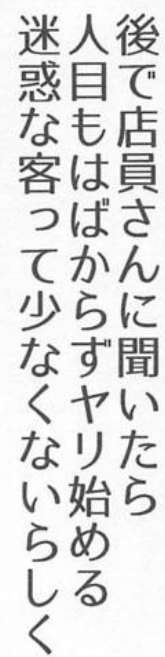 後で店員さんに聞いたら
人目もはばからずヤリ始める
迷惑な客って少なくないらしく